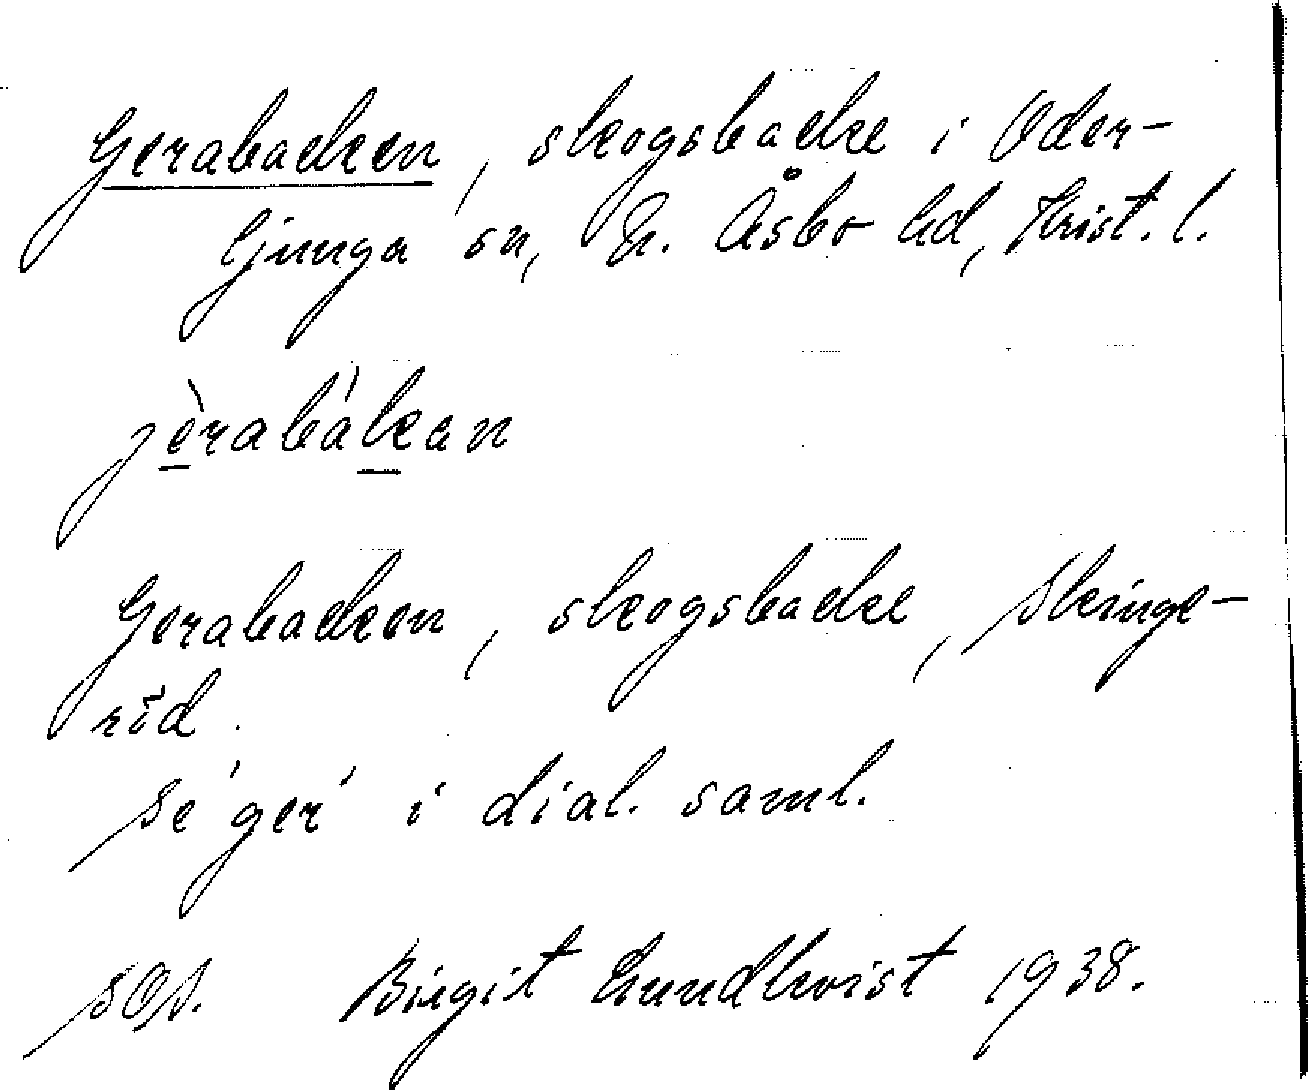 Gerabacken, skogsbacke i Oder-
ljunga sn, N. Åsbo hd, Krist. l.
jèrabákan
Gerabacken, skogsbacke, Skinge-
röd.
Se 'ger' i dial. saml.
SOS. Birgit Lundkvist 1938.